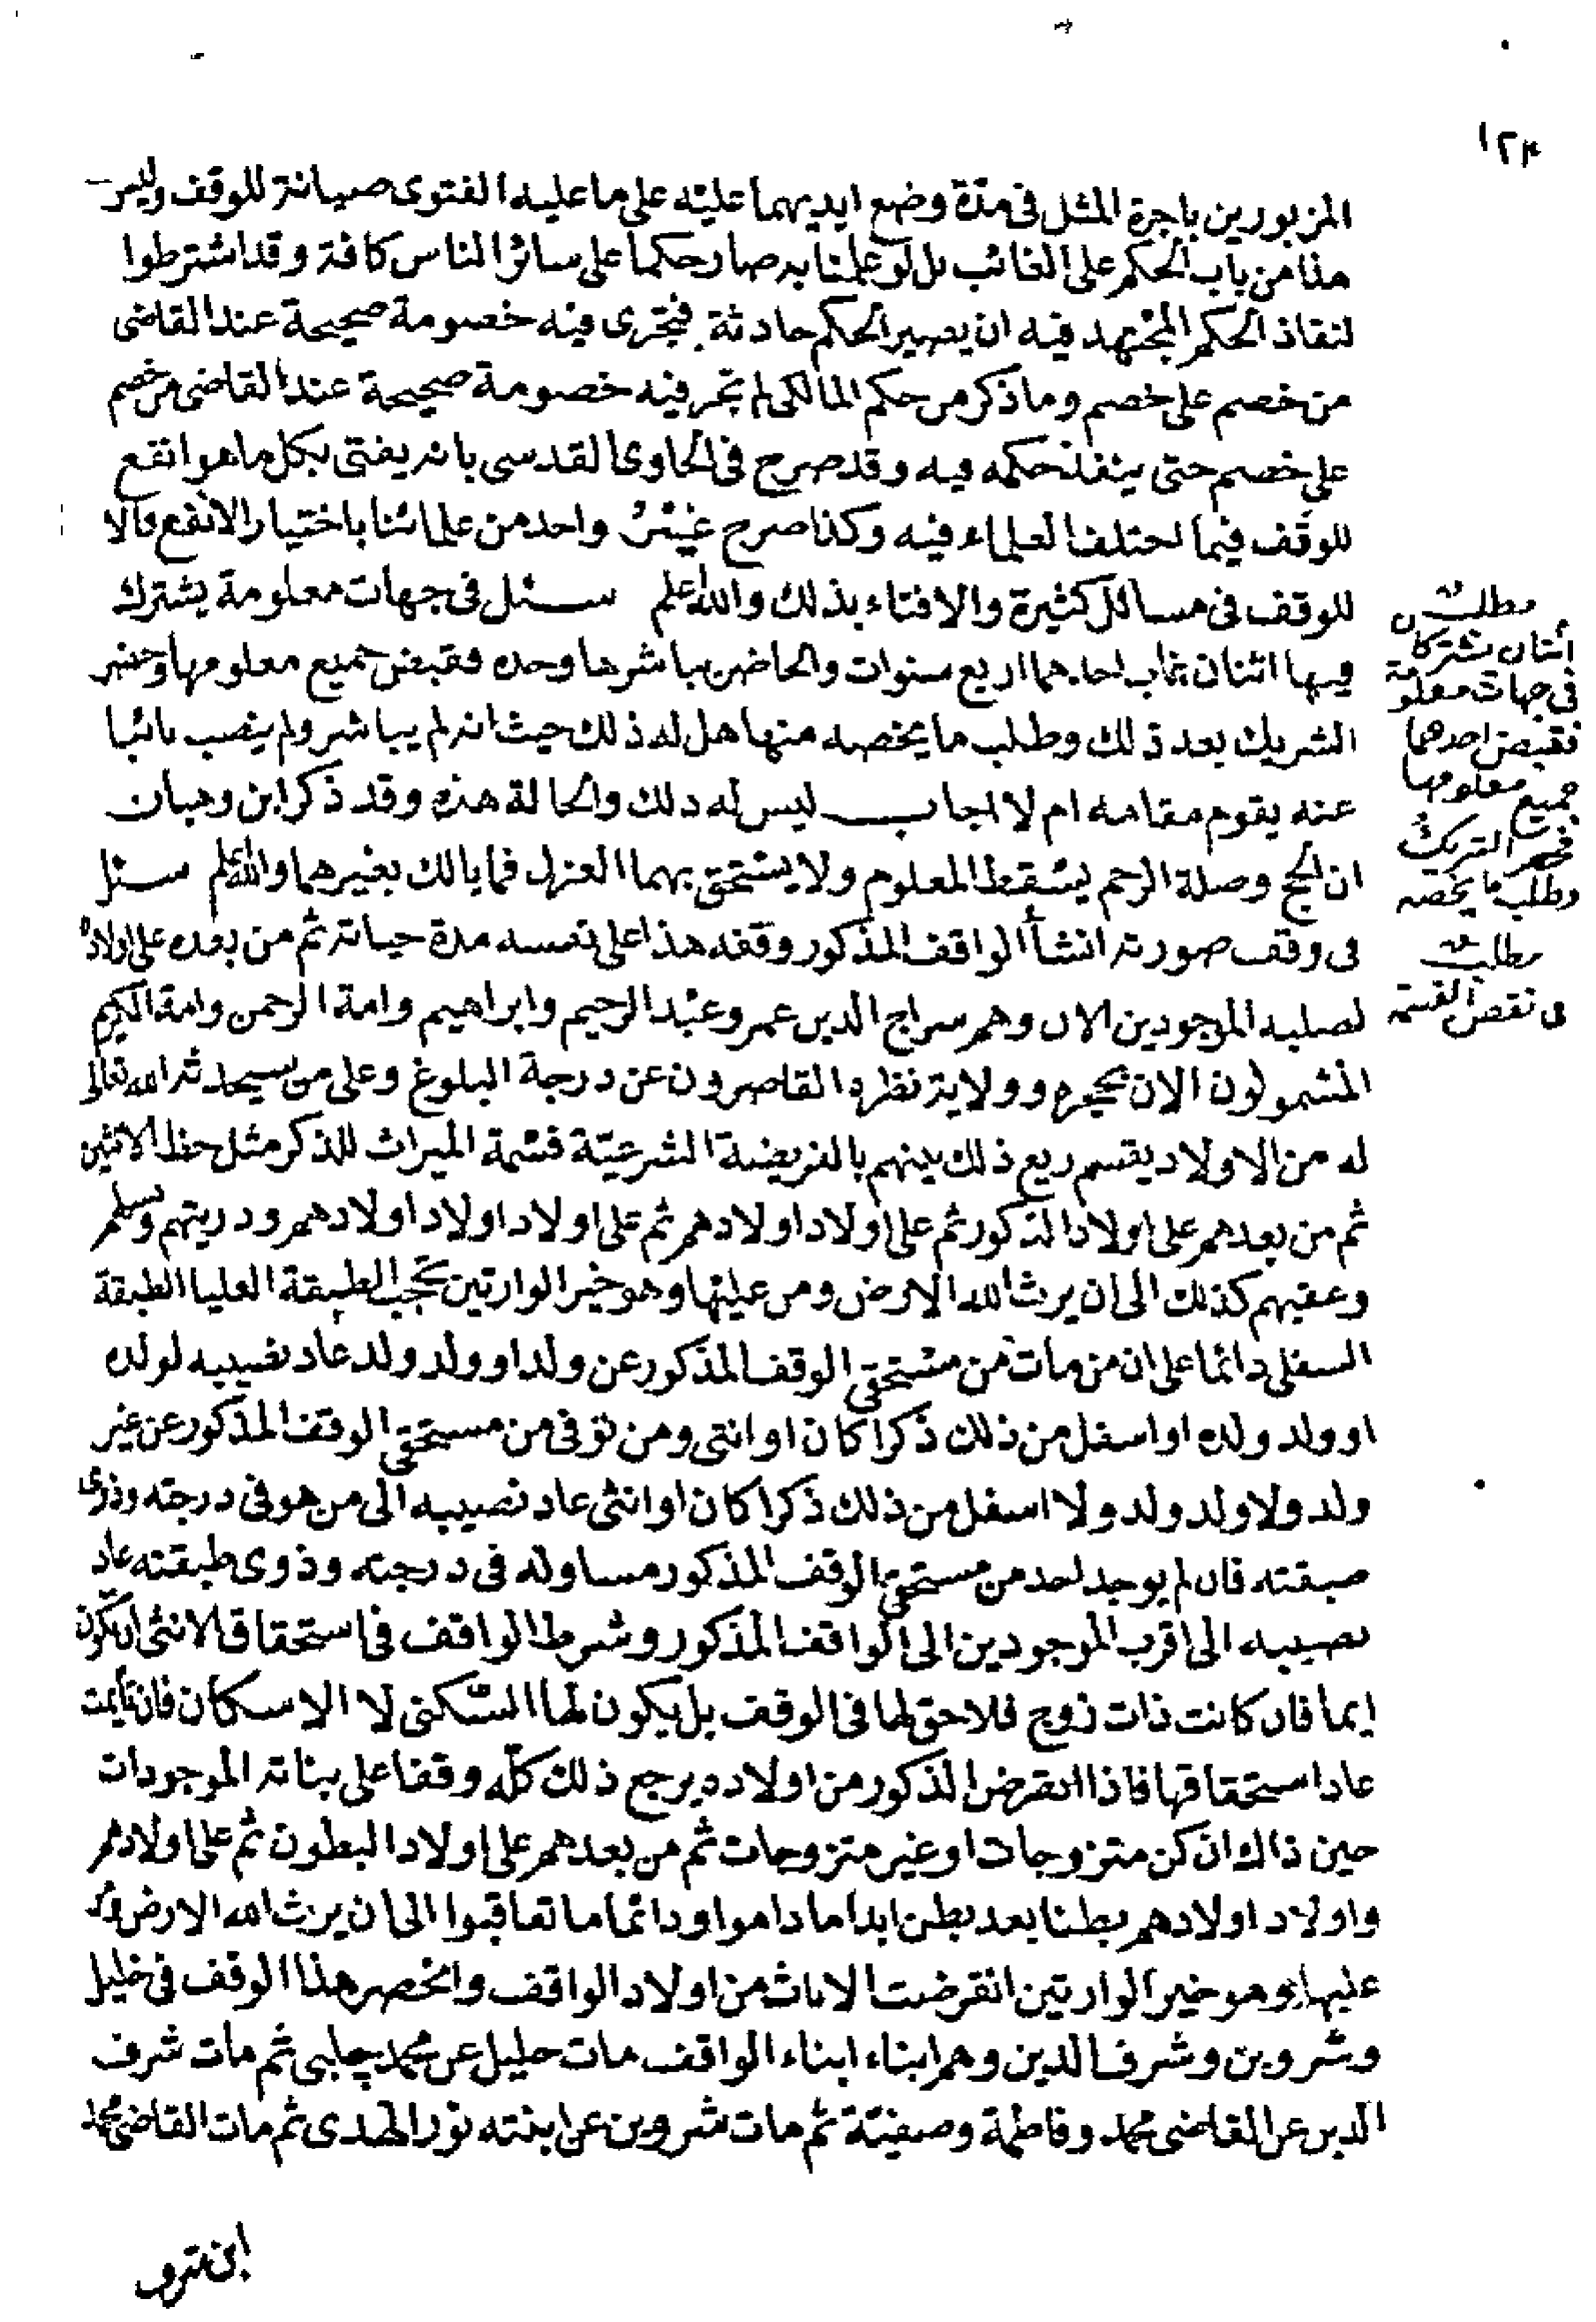 ١٢٤
المزبورين باجرة المثل فى مدة وضع ايديهما عليه على ما عليه الفتوى صيانة للوقف وليس
هذا من باب الحكم على الغائب بل لو علمنا به صار حكما على سائر الناس كافة وقد اشترطوا
لنفاذ الحكم المجتهد فيه ان يصير الحكم حادثة فتجرى فيه خصومة صحيحة عند القاضى
من خصم على خصم وما ذكر من حكم المالكى لم تجر فيه خصومة صحيحة عند القاضى من خصم
على خصم حتى ينفذ حكمه فيه وقد صرح فى الحاوى القدسى بانه يفتى بكل ما هو انفع
للوقف فيما اختلف العلماء فيه وكذا صرح غير واحد من علمائنا باختيار الانفع فالا
للوقف فى مسائل كثيرة والافتاء بذلك والله اعلم سئل فى جهات معلومة يشترك
فيها اثنان غاب احدهما اربع سنوات والحاضر يباشرها وحده فقبض جميع معلومها وحضر
الشريك بعد ذلك وطلب ما يخصه منها هل له ذلك حيث انه لم يباشر ولم ينصب نائبا
عنه يقوم مقامه ام لا اجاب ليس له ذلك والحالة هذه وقد ذكر ابن وهبان
ان الحج وصلة الرحم يسقط المعلوم ولا يستحق بهما العزل فما بالك بغيرهما والله اعلم سئل
فى وقف صورته انشأ الواقف المذكور وقفه هذا على نفسه مدة حياته ثم من بعده على اولاده
لصلبه الموجودين الان وهم سراج الدين عمر وعبد الرحيم وابراهيم وامة الرحمن وامة الكريم
المشمولون الان بحجره وولاية نظره القاصرون عن درجة البلوغ وعلى من سيحدثه الله تعالى
له من الاولاد يقسم ريع ذلك بينهم بالفريضة الشرعية قسمة الميراث للذكر مثل حظ الانثيين
ثم من بعدهم على اولاد الذكور ثم على اولاد اولادهم ثم على اولاد اولاد اولادهم وذريتهم ونسلهم
وعقبهم كذلك الى ان يرث الله الارض ومن عليها وهو خير الوارثين تحجب الطبقة العليا الطبقة
السفلى دائما على ان من مات من مستحقى الوقف المذكور عن ولد او ولد ولد عاد نصيبه لولده
او ولد ولده او اسفل من ذلك ذكرا كان او انثى ومن توفى من مستحقى الوقف المذكور عن غير
ولد ولا ولد ولد ولا اسفل من ذلك ذكرا كان او انثى عاد نصيبه الى من هو فى درجته وذوى
طبقته فان لم يوجد احد من مستحقى الوقف المذكور مساو له فى درجته وذوى طبقته عاد
نصيبه الى اقرب الموجودين الى الواقف المذكور وشرط الواقف فى استحقاق الانثى ان تكون
ايما فان كانت ذات زوج فلا حق لها فى الوقف بل يكون لها السكنى لا الاسكان فان تأيمت
عاد استحقاقها فاذا انقرض الذكور من اولاده يرجع ذلك كله وقفا على بناته الموجودات
حين ذاك ان كن متزوجات او غير متزوجات ثم من بعدهم على اولاد البطون ثم على اولادهم
واولاد اولادهم بطنا بعد بطن ابدا ما داموا ودائما ما تعاقبوا الى ان يرث الله الارض ومن
عليها وهو خير الوارثين انقرضت الاناث من اولاد الواقف وانحصر هذا الوقف فى خليل
وشروين وشرف الدين وهم ابناء ابناء الواقف مات خليل عن محمد چلبى ثم مات شرف
الدين عن القاضى محمد وفاطمة وصفية ثم مات شروين عن ابنته نور الهدى ثم مات القاضى محمد
مطلب
اثنان مشتركان
فى جهات معلومة
فقبض احدهما
جميع معلومها
فحضر الشريك
وطلب ما يخصه
مطلب
فى نقض القسمة